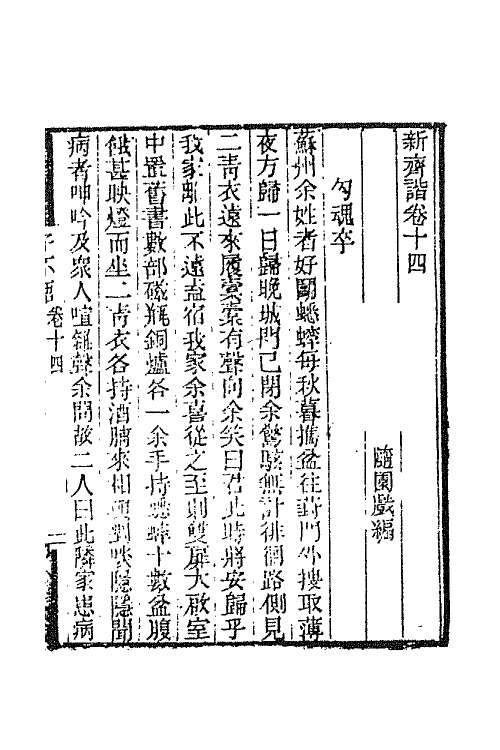 新齊諧卷十四
隨園戲編
勾魂卒
蘇州余姓者好鬭蟋蟀每秋暮攜盆往葑門外搜取薄
夜方歸一日歸晚城門已閉余驚駭無計徘徊路側見
二青衣遠來履橐橐有聲向余笑曰君此時將安歸乎
我家離此不遠盍宿我家余喜從之至則雙扉大啟室
中置舊書數部磁瓶銅爐各一余手持蟋蟀十數盆腹
餓甚映燈而坐二青衣各持酒脯來相與對啖隱隱聞
病者呻吟及眾人喧雜聲余問故二人曰此隣家患病
子不語 卷十四 一